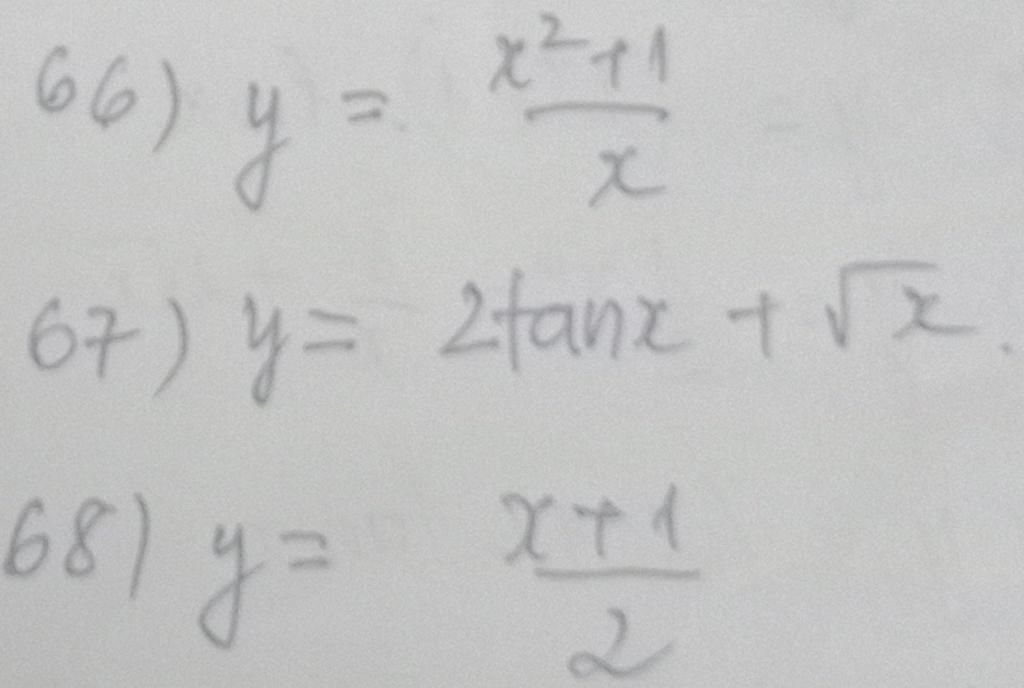 66) y = x²+1 / x
67) y = 2tanx + √x.
68) y = x+1 / 2